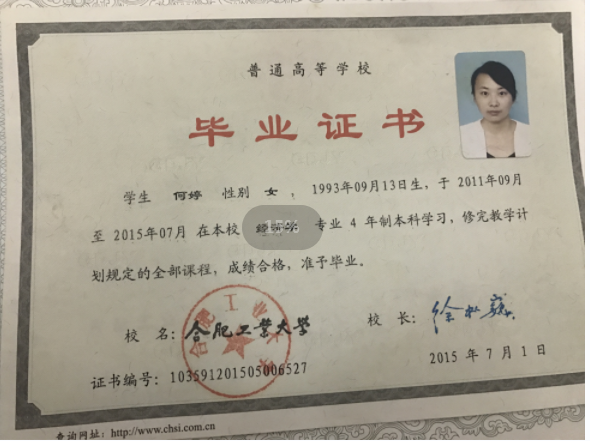 普通高等学校
毕业证书
学生 何婷 性别 女，1993年09月13日生，于 2011年09月
至 2015年07月 在本校 专业 4 年制本科学习，修完教学计
划规定的全部课程，成绩合格，准予毕业。
校 名：合肥工业大学
校 长：
2015 年 7 月 1 日
证书编号：103591201505006527
查询网址：http://www.chsi.com.cn